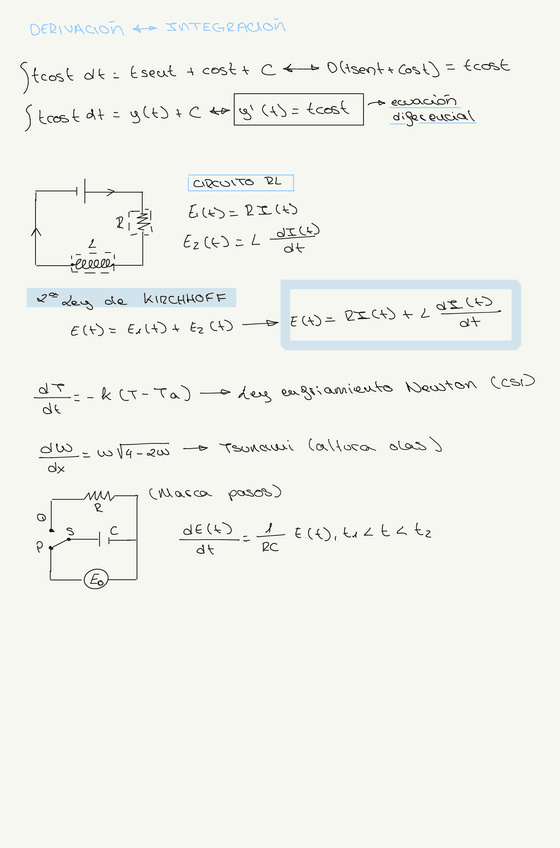 DERIVACIOÑ ↔ INTEGRACIOÑ
∫tcost dt = tsent + cost + C ↔ D(tsent + cost) = tcost
∫tcost dt = y(t) + C ↔ y'(t) = tcost → ecuación diferencial
CIRCUITO RL
E₁(t) = R I(t)
R
L
E₂(t) = L dI(t)/dt
2ª Ley de KIRCHHOFF
E(t) = E₁(t) + E₂(t) → E(t) = RI(t) + L dI(t)/dt
dT/dt = -k (T - Ta) → Ley enfriamiento Newton (CSI)
dw/dx = w√4-2w → Tsunami (altura olas)
(Marca pasos)
R
Q
S
C
P
E₀
dE(t)/dt = 1/RC E(t), t₁ < t < t₂